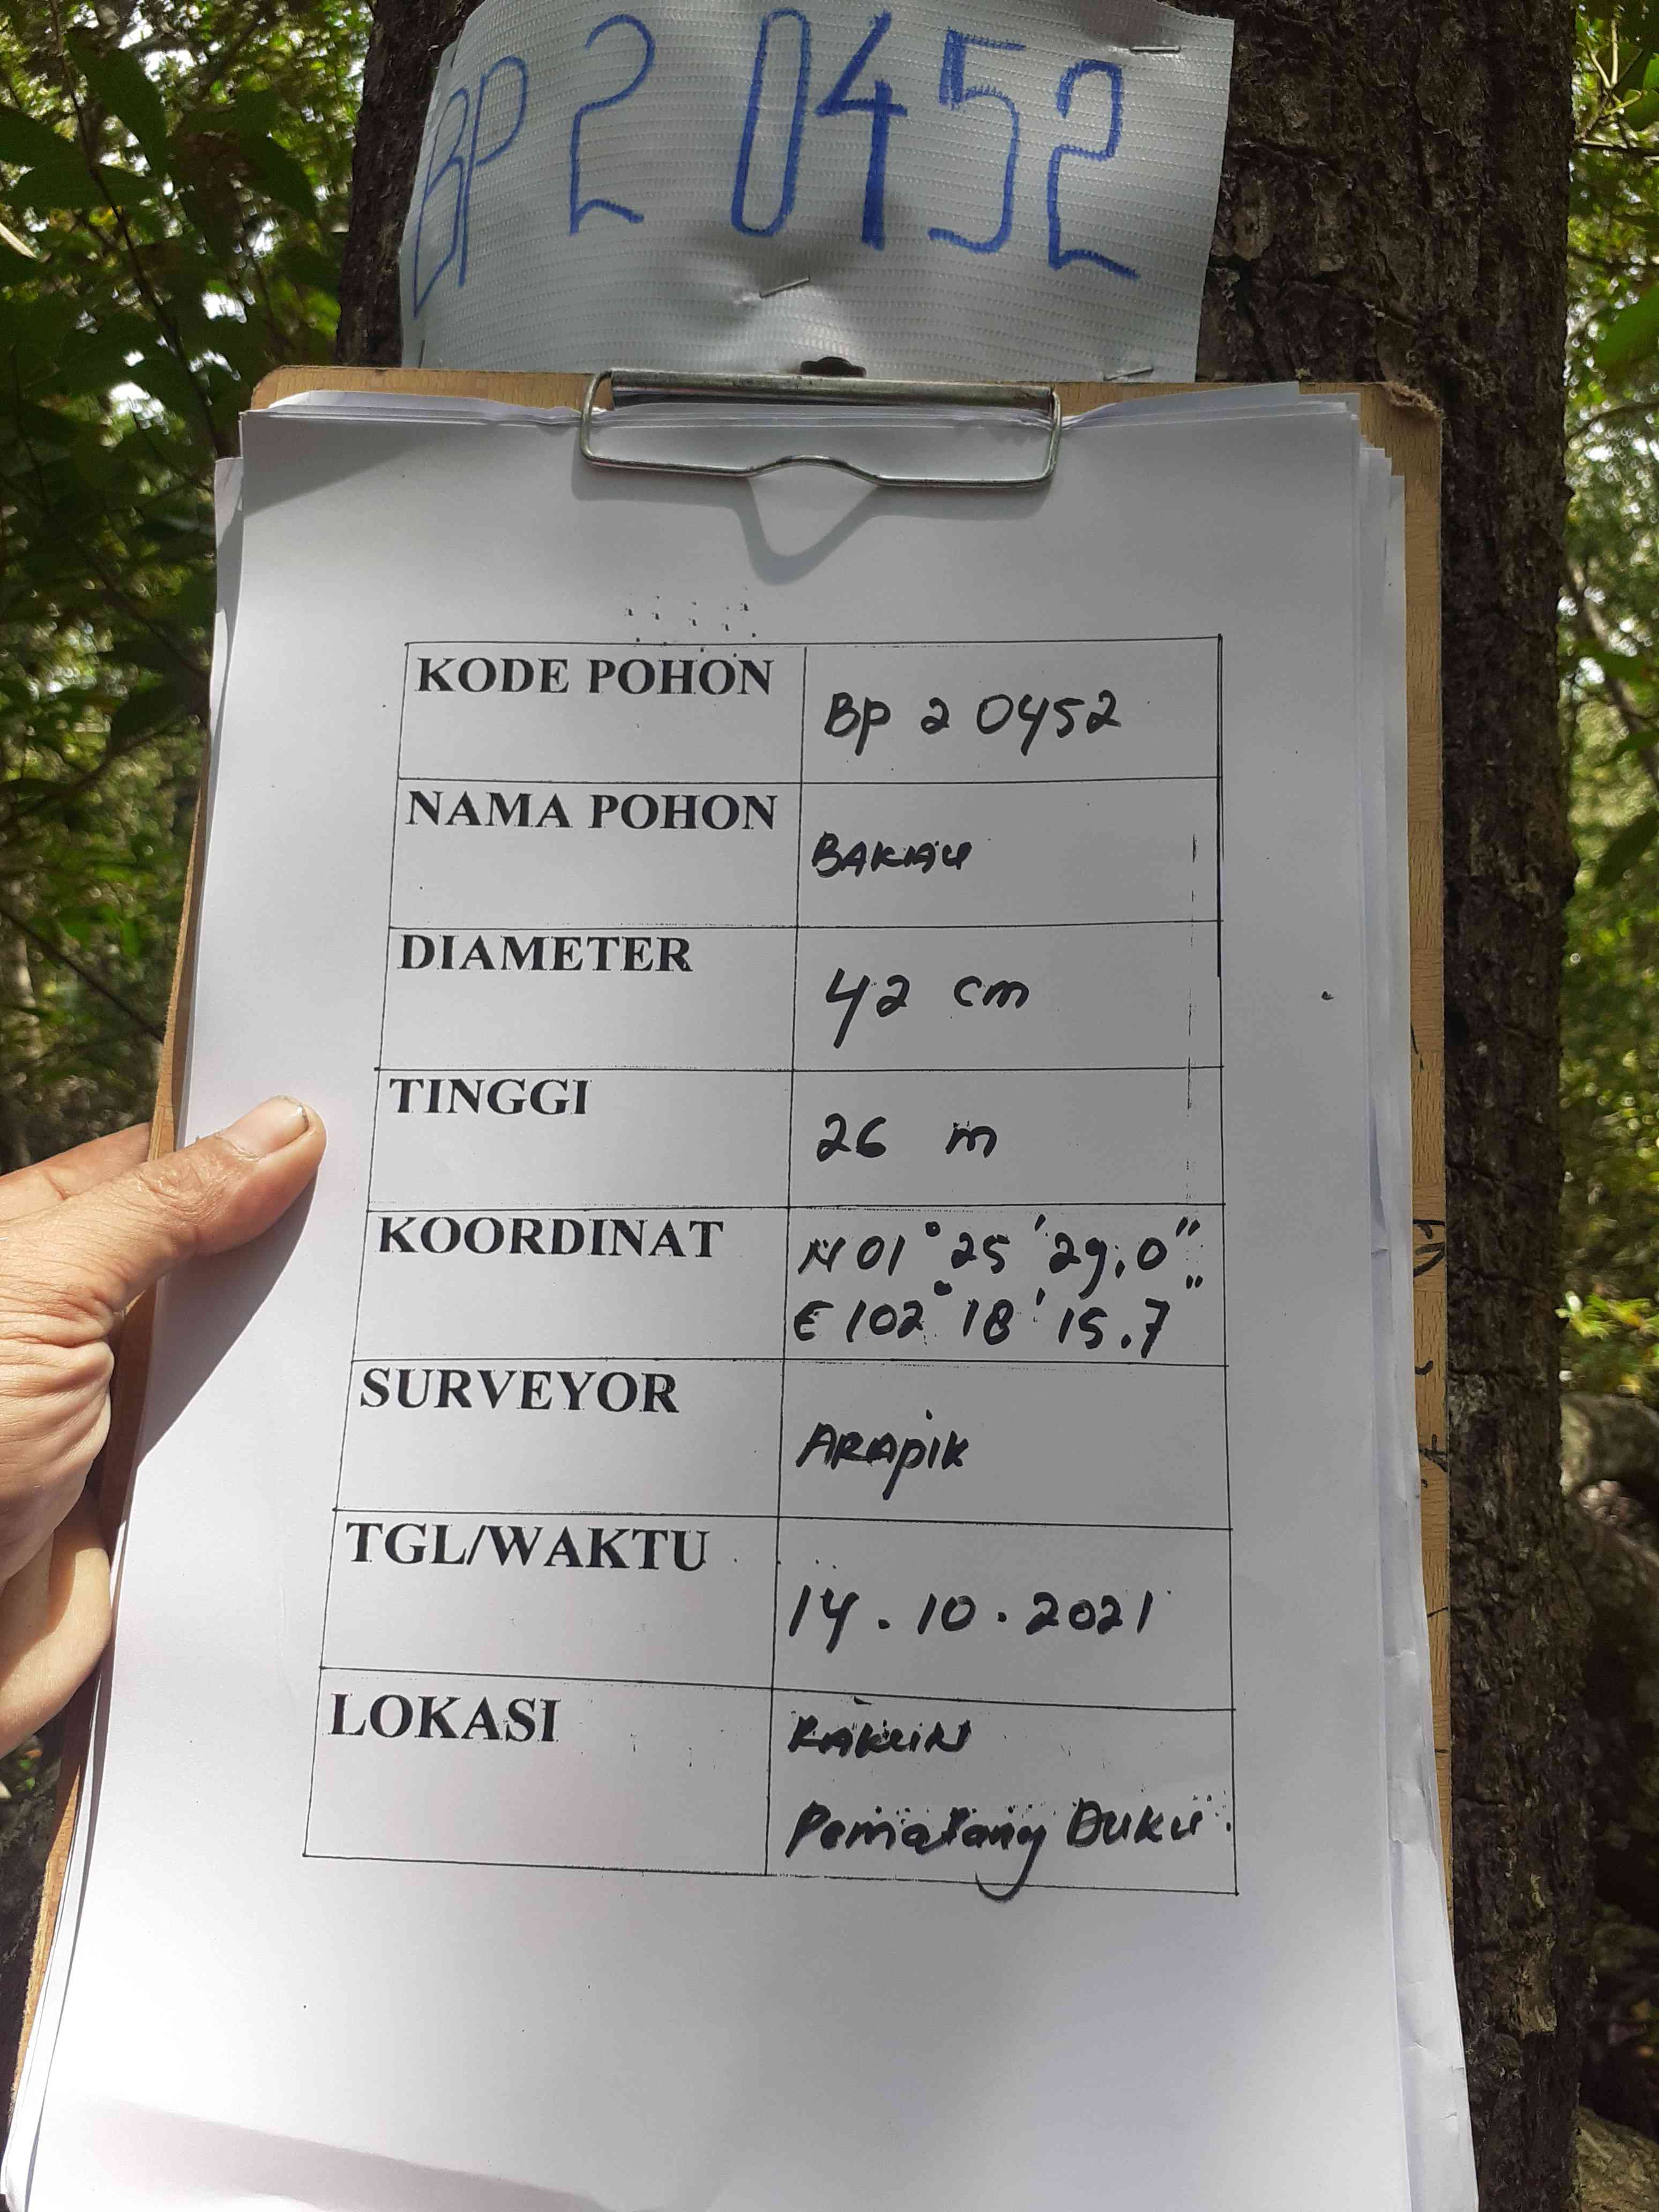 BP 2 0452
KODE POHON
BP 2 0452
NAMA POHON
BAKAU
DIAMETER
42 cm
TINGGI
26 m
KOORDINAT
N 01° 25' 29.0"
E 102° 18' 15.7"
SURVEYOR
ARAPIK
TGL/WAKTU
14.10.2021
LOKASI
Pematang Duku